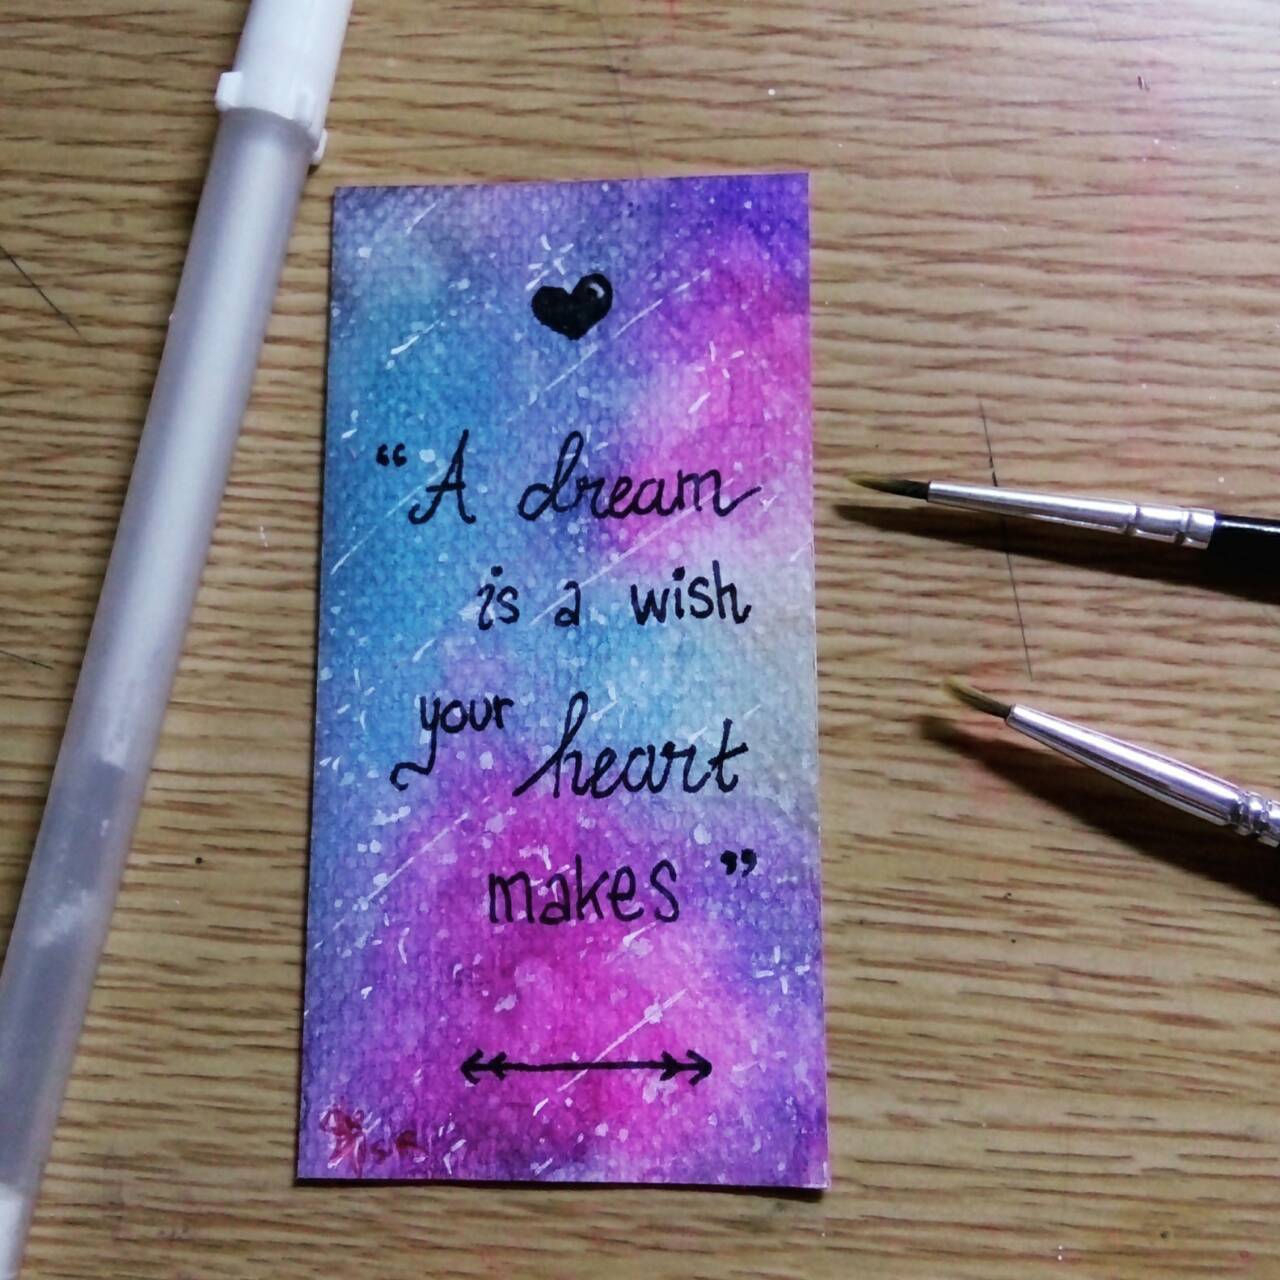 “A dream
is a wish
your heart
makes”